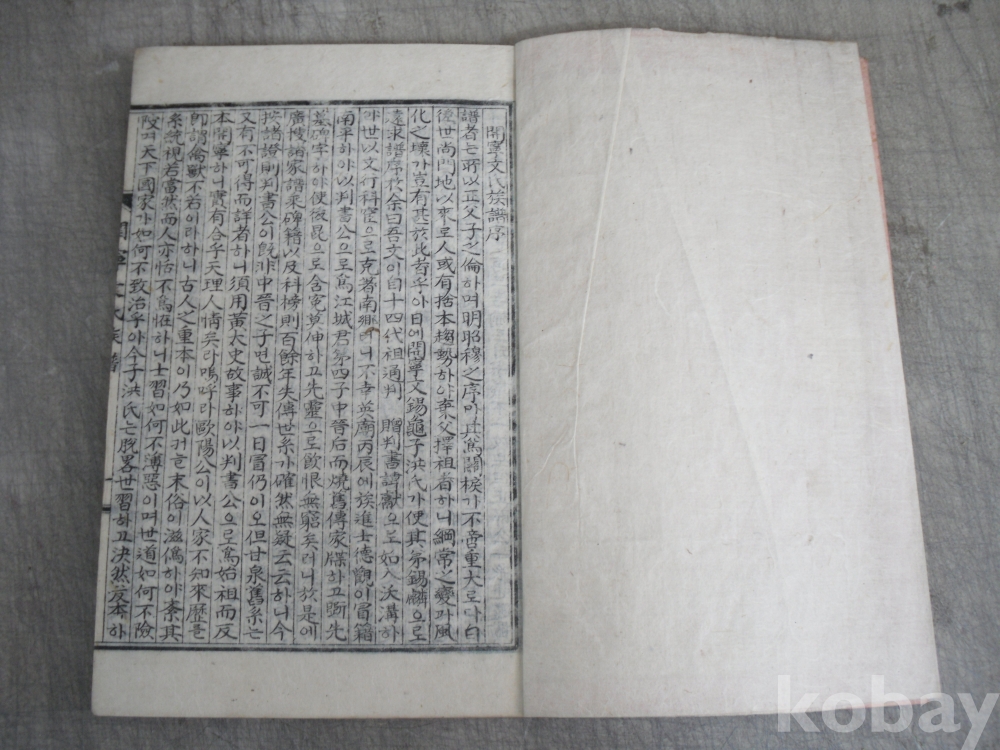 開寧文氏族譜序
譜者는所以正父子之倫하며明昭穆之序야其爲關棙가不啻重大로다曰
後世尙門地以來로人或有捨本趨勢하야棄父擇祖者하니綱常之變과風
化之壞가豈有甚於此者乎아日에開寧文錫龜子洪氏가使其弟錫麟으로
遠求譜序於余曰吾文이自十四代祖通判 贈判書諱獻으로如入沃溝하
야世以文行科宦으로克著南鄕이러니不幸英廟丙辰에族進士德觀이冒籍
南平하야以判書公으로爲江城君第四子中晉后而燒舊傳家牒하고斷先
墓碑字하야使後昆으로含寃莫伸하고先靈으로飮恨無窮矣러니於是에
廣搜諸家譜乘碑籍以及科榜則百餘年失傳世系가確然無疑云云하니今
按諸證則判書公이旣非中晉之子면誠不可一日冒仍이오但甘泉舊系는
又有不可得而詳者하니須用黃太史故事하야以判書公으로爲始祖而反
本開寧하니實有合乎天理人情矣라嗚呼라歐陽公이以人家不知來歷을
卽謂倫獸不若이라하니古人之重本이乃如此커늘末俗이滋僞하야紊其
系統視若當然而人亦恬不爲怪하니士習如何不薄惡이며世道如何不險
陂며天下國家가如何不致治乎아今子洪氏는脫畧世習하고決然反本하
開寧文氏族譜
kobay